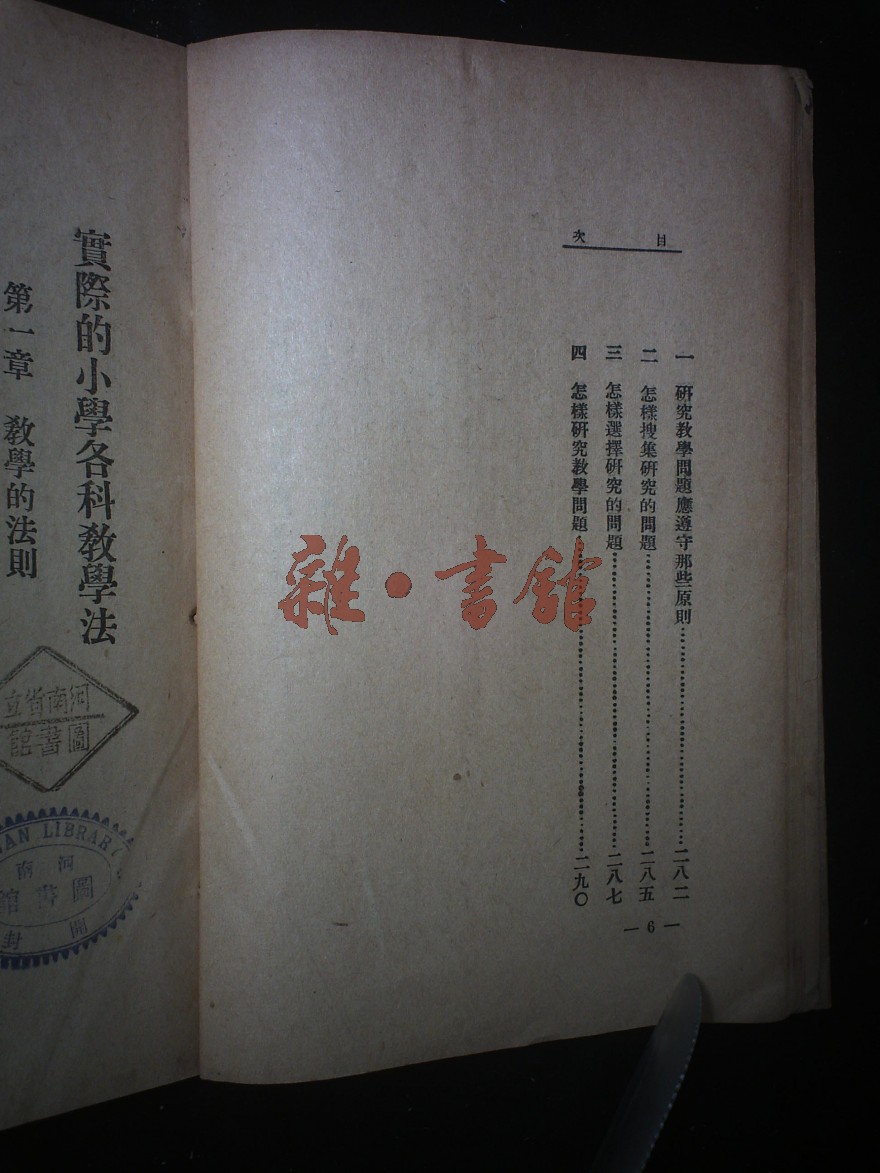 目次
一　研究教學問題應遵守那些原則……二八二
二　怎樣搜集研究的問題……二八五
三　怎樣選擇研究的問題……二八七
四　怎樣研究教學問題……二九〇
— 6 —
實際的小學各科教學法
第一章　教學的法則
河南省立
圖書館
AN LIBRARY
河南
圖書館
開封
雜·書館